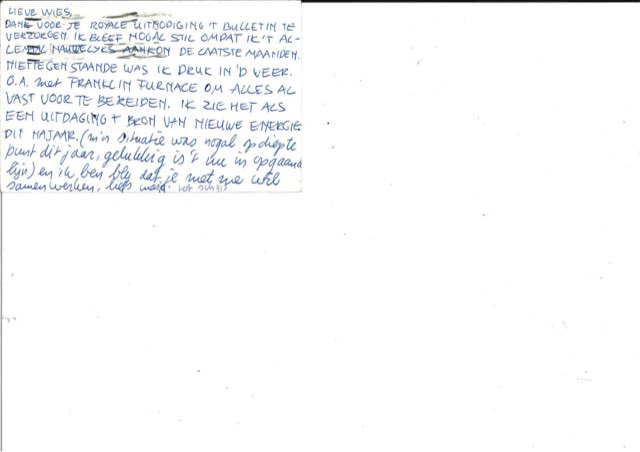 LIEVE WIES,
DANK VOOR JE ROYALE UITNODIGING 'T BULLETIN TE
VERZORGEN. IK BLEEF NOGAL STIL OMDAT IK 'T AL-
LEMAAL NAUWELYKS AANKON DE LAATSTE MAANDEN.
NIETTEGENSTAANDE WAS IK DRUK IN 'D WEER.
O.A. met FRANKLIN FURNACE OM ALLES AL
VAST VOOR TE BEREIDEN. IK ZIE HET ALS
EEN UITDAGING + BRON VAN NIEUWE ENERGIE
DIT NAJAAR. (m'n situatie was nogal op diepte
punt dit jaar, gelukkig is 't nu in opgaande
lijn) en ik ben bly dat je met me wil
samenwerken. liefs